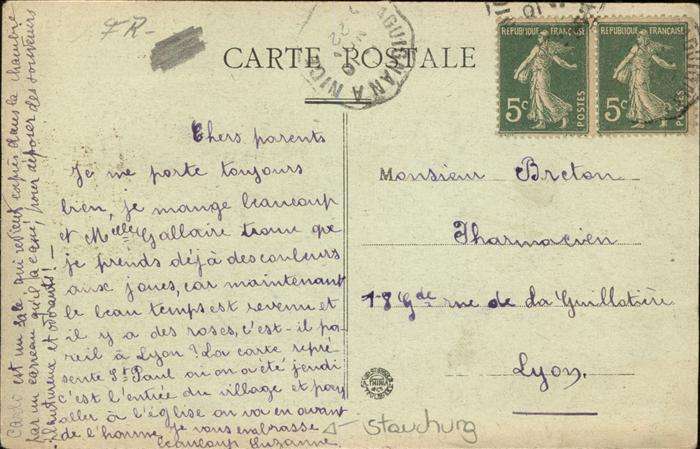 FR-
CARTE POSTALE
DRAGUIGNAN A NICE
RÉPUBLIQUE FRANÇAISE
5c
POSTES
RÉPUBLIQUE FRANÇAISE
5c
POSTES
Chers parents
Je me porte toujours
bien, je mange beaucoup
et Melle Gallaire trouve que
je prends déjà des couleurs
aux joues, car maintenant
le beau temps est revenu et
il y a des roses, c'est-il pa-
reil à Lyon? La carte repré
sente St Paul où on a été jeudi
c'est l'entrée du village et pour
aller à l'église on va en avant
de l'homme, je vous embrasse
beaucoup Suzanne
est un sale qui revient exprès dans la chambre
par un carreau qu'il a cassé, pour déposer des souvenirs
et odorants! —
Monsieur Breton
Pharmacien
18 Gde rue de la Guillotière
Lyon.